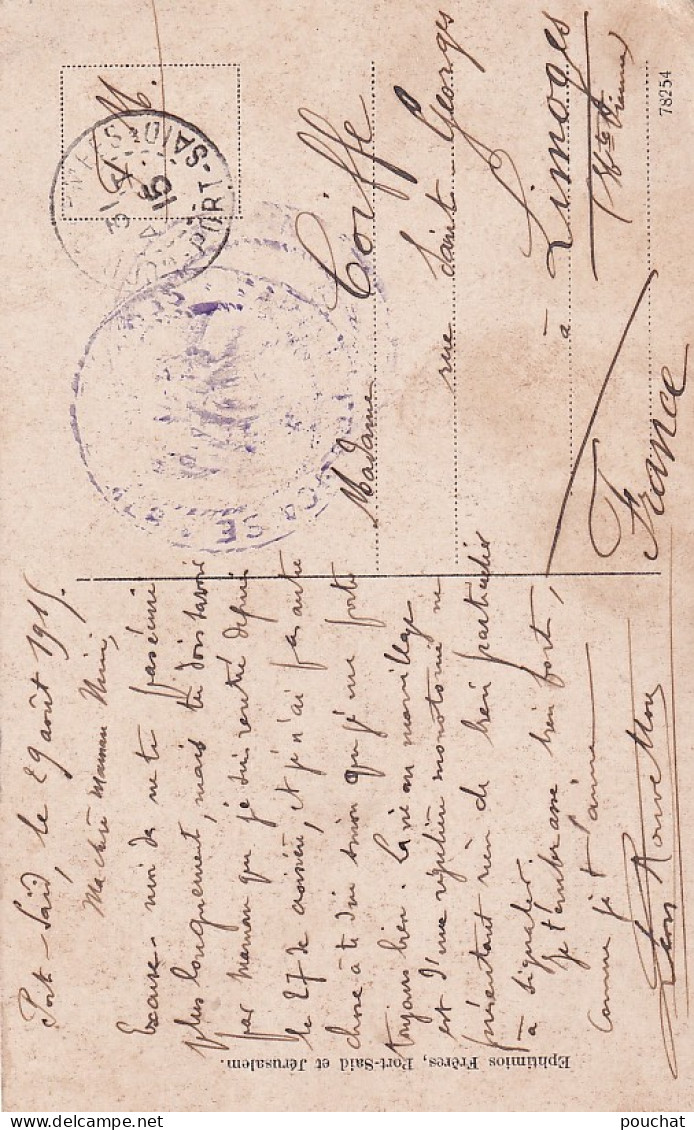 Port-Saïd, le 29 août 1915.
Ma chère Maman Mimi,
Excuse-moi de ne t'
plus longuement, mais tu dois savoir
par Maman que je suis rentré depuis
le 27 de croisière, et je n'ai pas autre
chose à te dire sinon que je me porte
toujours bien. La vie au mouillage
est d'une régulière monotonie ne
présentant rien de bien particulier
à signaler.
Je t'embrasse bien fort,
comme je t'aime
Ephtimios Frères, Port-Said et Jérusalem.
F. M.
PORT-SAID
31
15
Madame Coiffe
rue Saint Georges
à Limoges
(Hte Vienne)
France
78254
pouchat